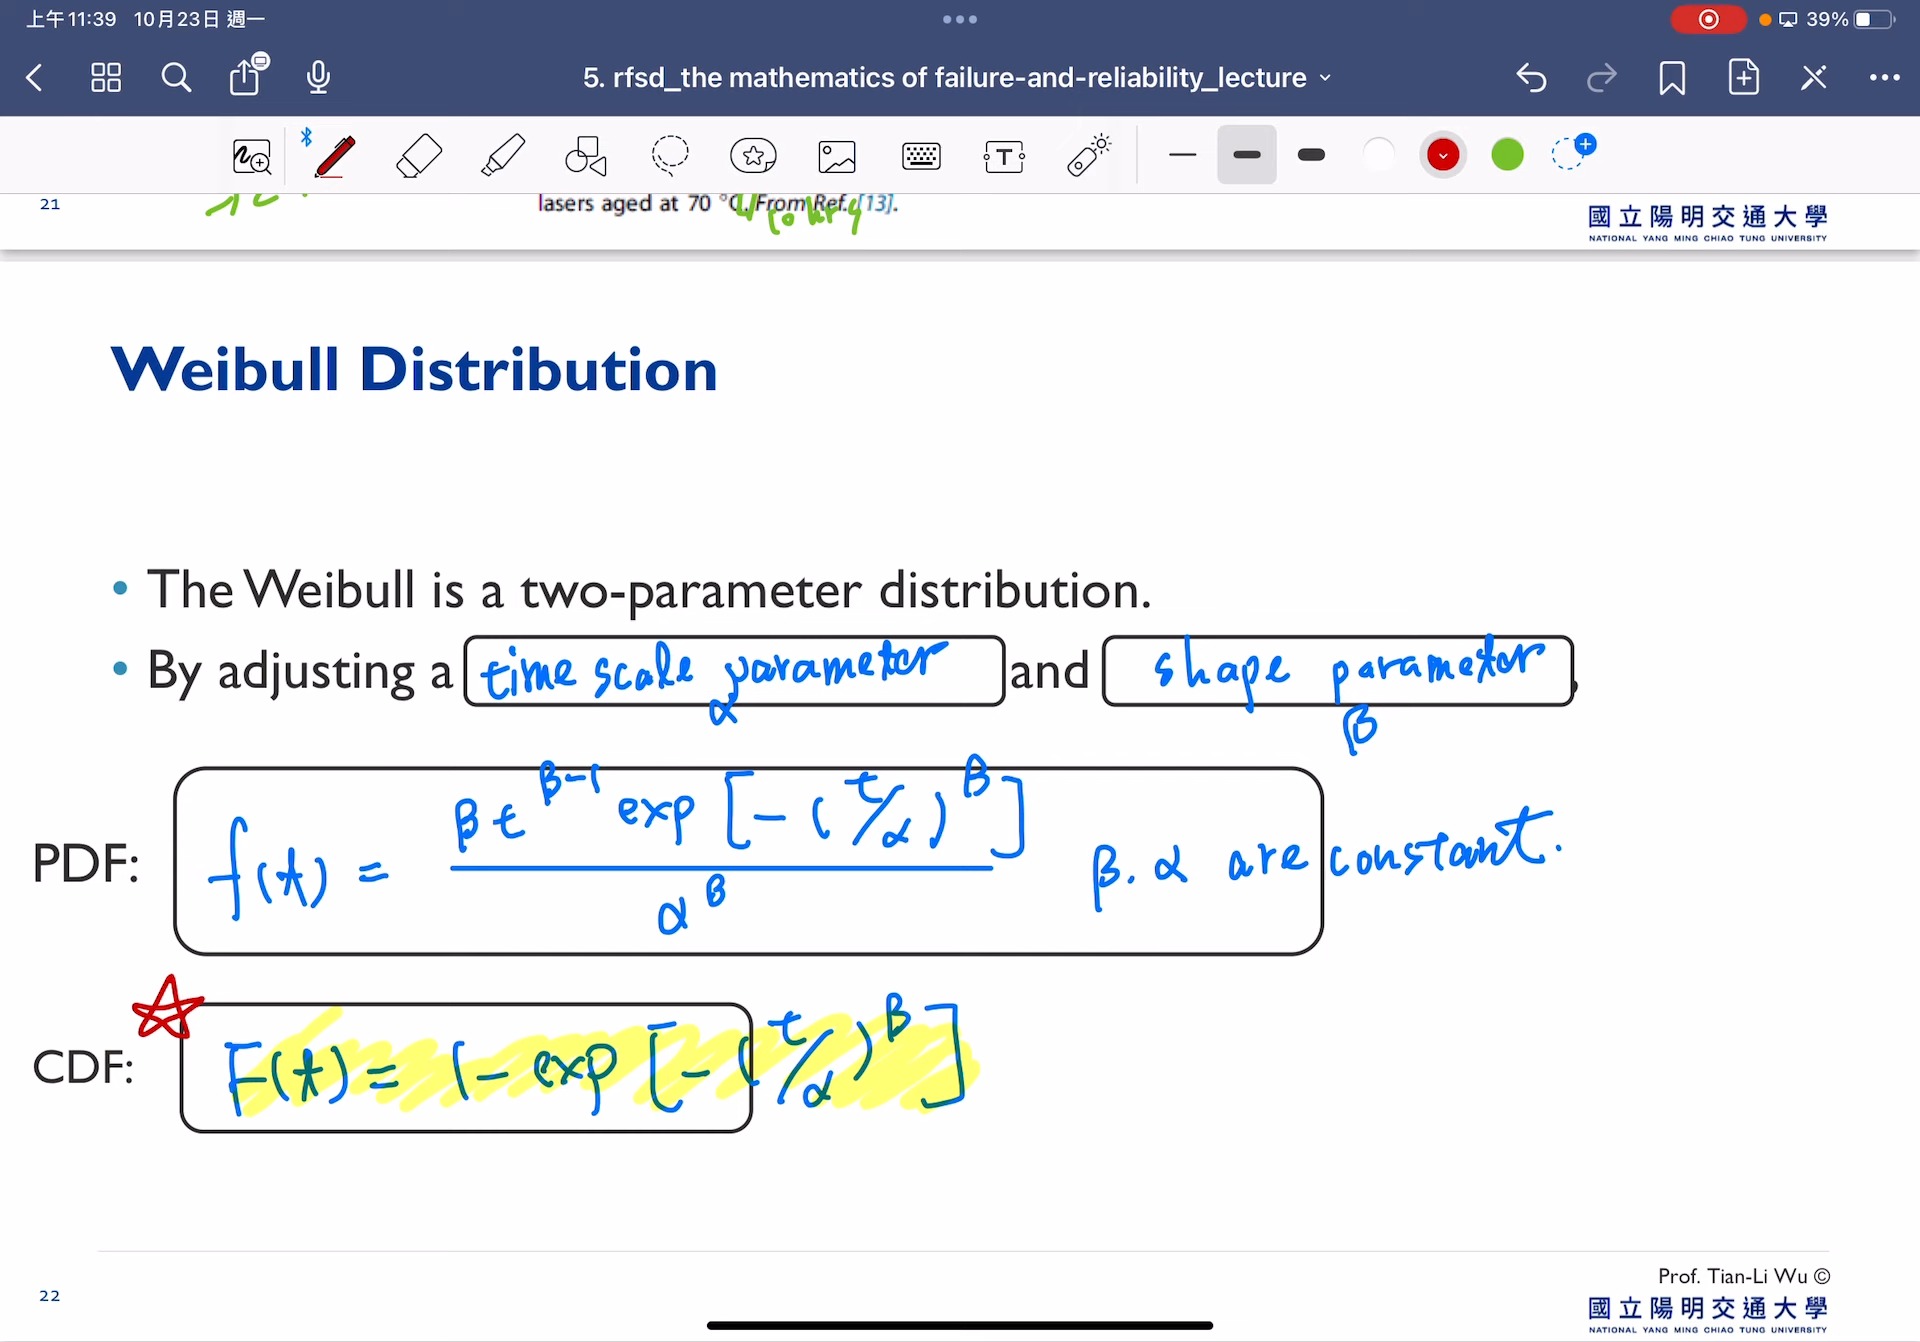 上午11:39 10月23日 週一 39%
5. rfsd_the mathematics of failure-and-reliability_lecture
T
21 lasers aged at 70 °C. From Ref. [13].
10 hrs
國立陽明交通大學
NATIONAL YANG MING CHIAO TUNG UNIVERSITY
Weibull Distribution
• The Weibull is a two-parameter distribution.
• By adjusting a time scale parameter and shape parameter.
α β
PDF: f(t) = βt^(β-1) exp[-(t/α)^β] / α^β β. α are constant.
CDF: F(t) = 1 - exp[-(t/α)^β]
Prof. Tian-Li Wu ©
22
國立陽明交通大學
NATIONAL YANG MING CHIAO TUNG UNIVERSITY